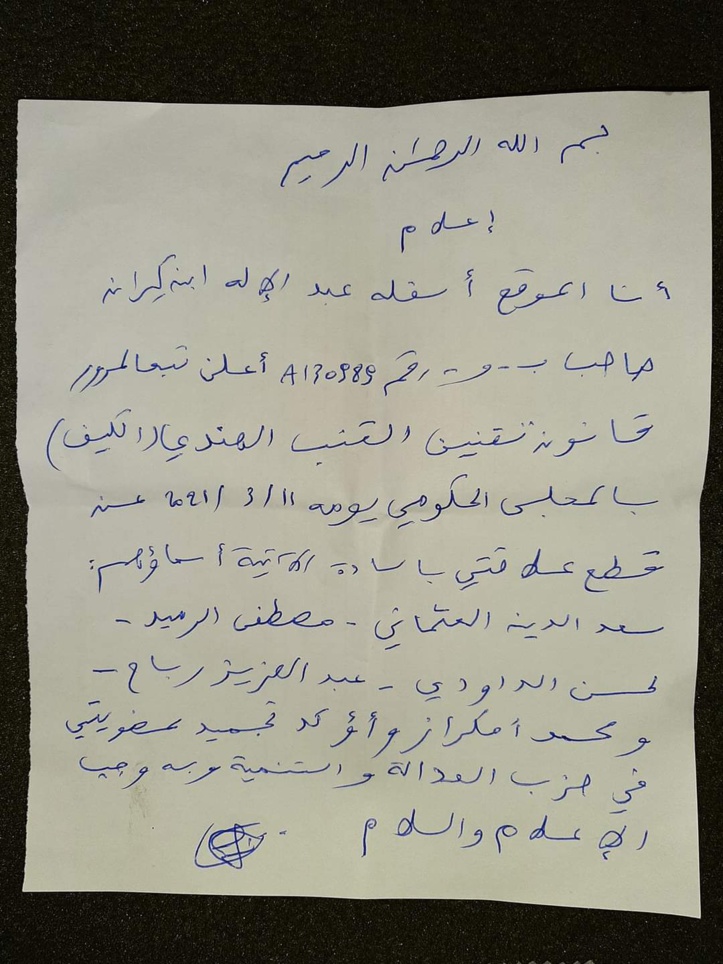 بسم الله الرحمان الرحيم
إعلام
أنا الموقع أسفله عبد الإله ابن كيران
صاحب ب-و- رقم A130989 أعلن تبعا لمرور
قانون تقنين القنب الهندي (الكيف)
بالمجلس الحكومي يومه 11/3/2021 عن
قطع علاقتي بالسادة الآتية أسماؤهم:
سعد الدين العثماني - مصطفى الرميد -
لحسن الداودي - عبد العزيز رباح -
ومحمد أمكراز وأؤكد تجميد عضويتي
في حزب العدالة والتنمية وبه وجب
الإعلام والسلام.